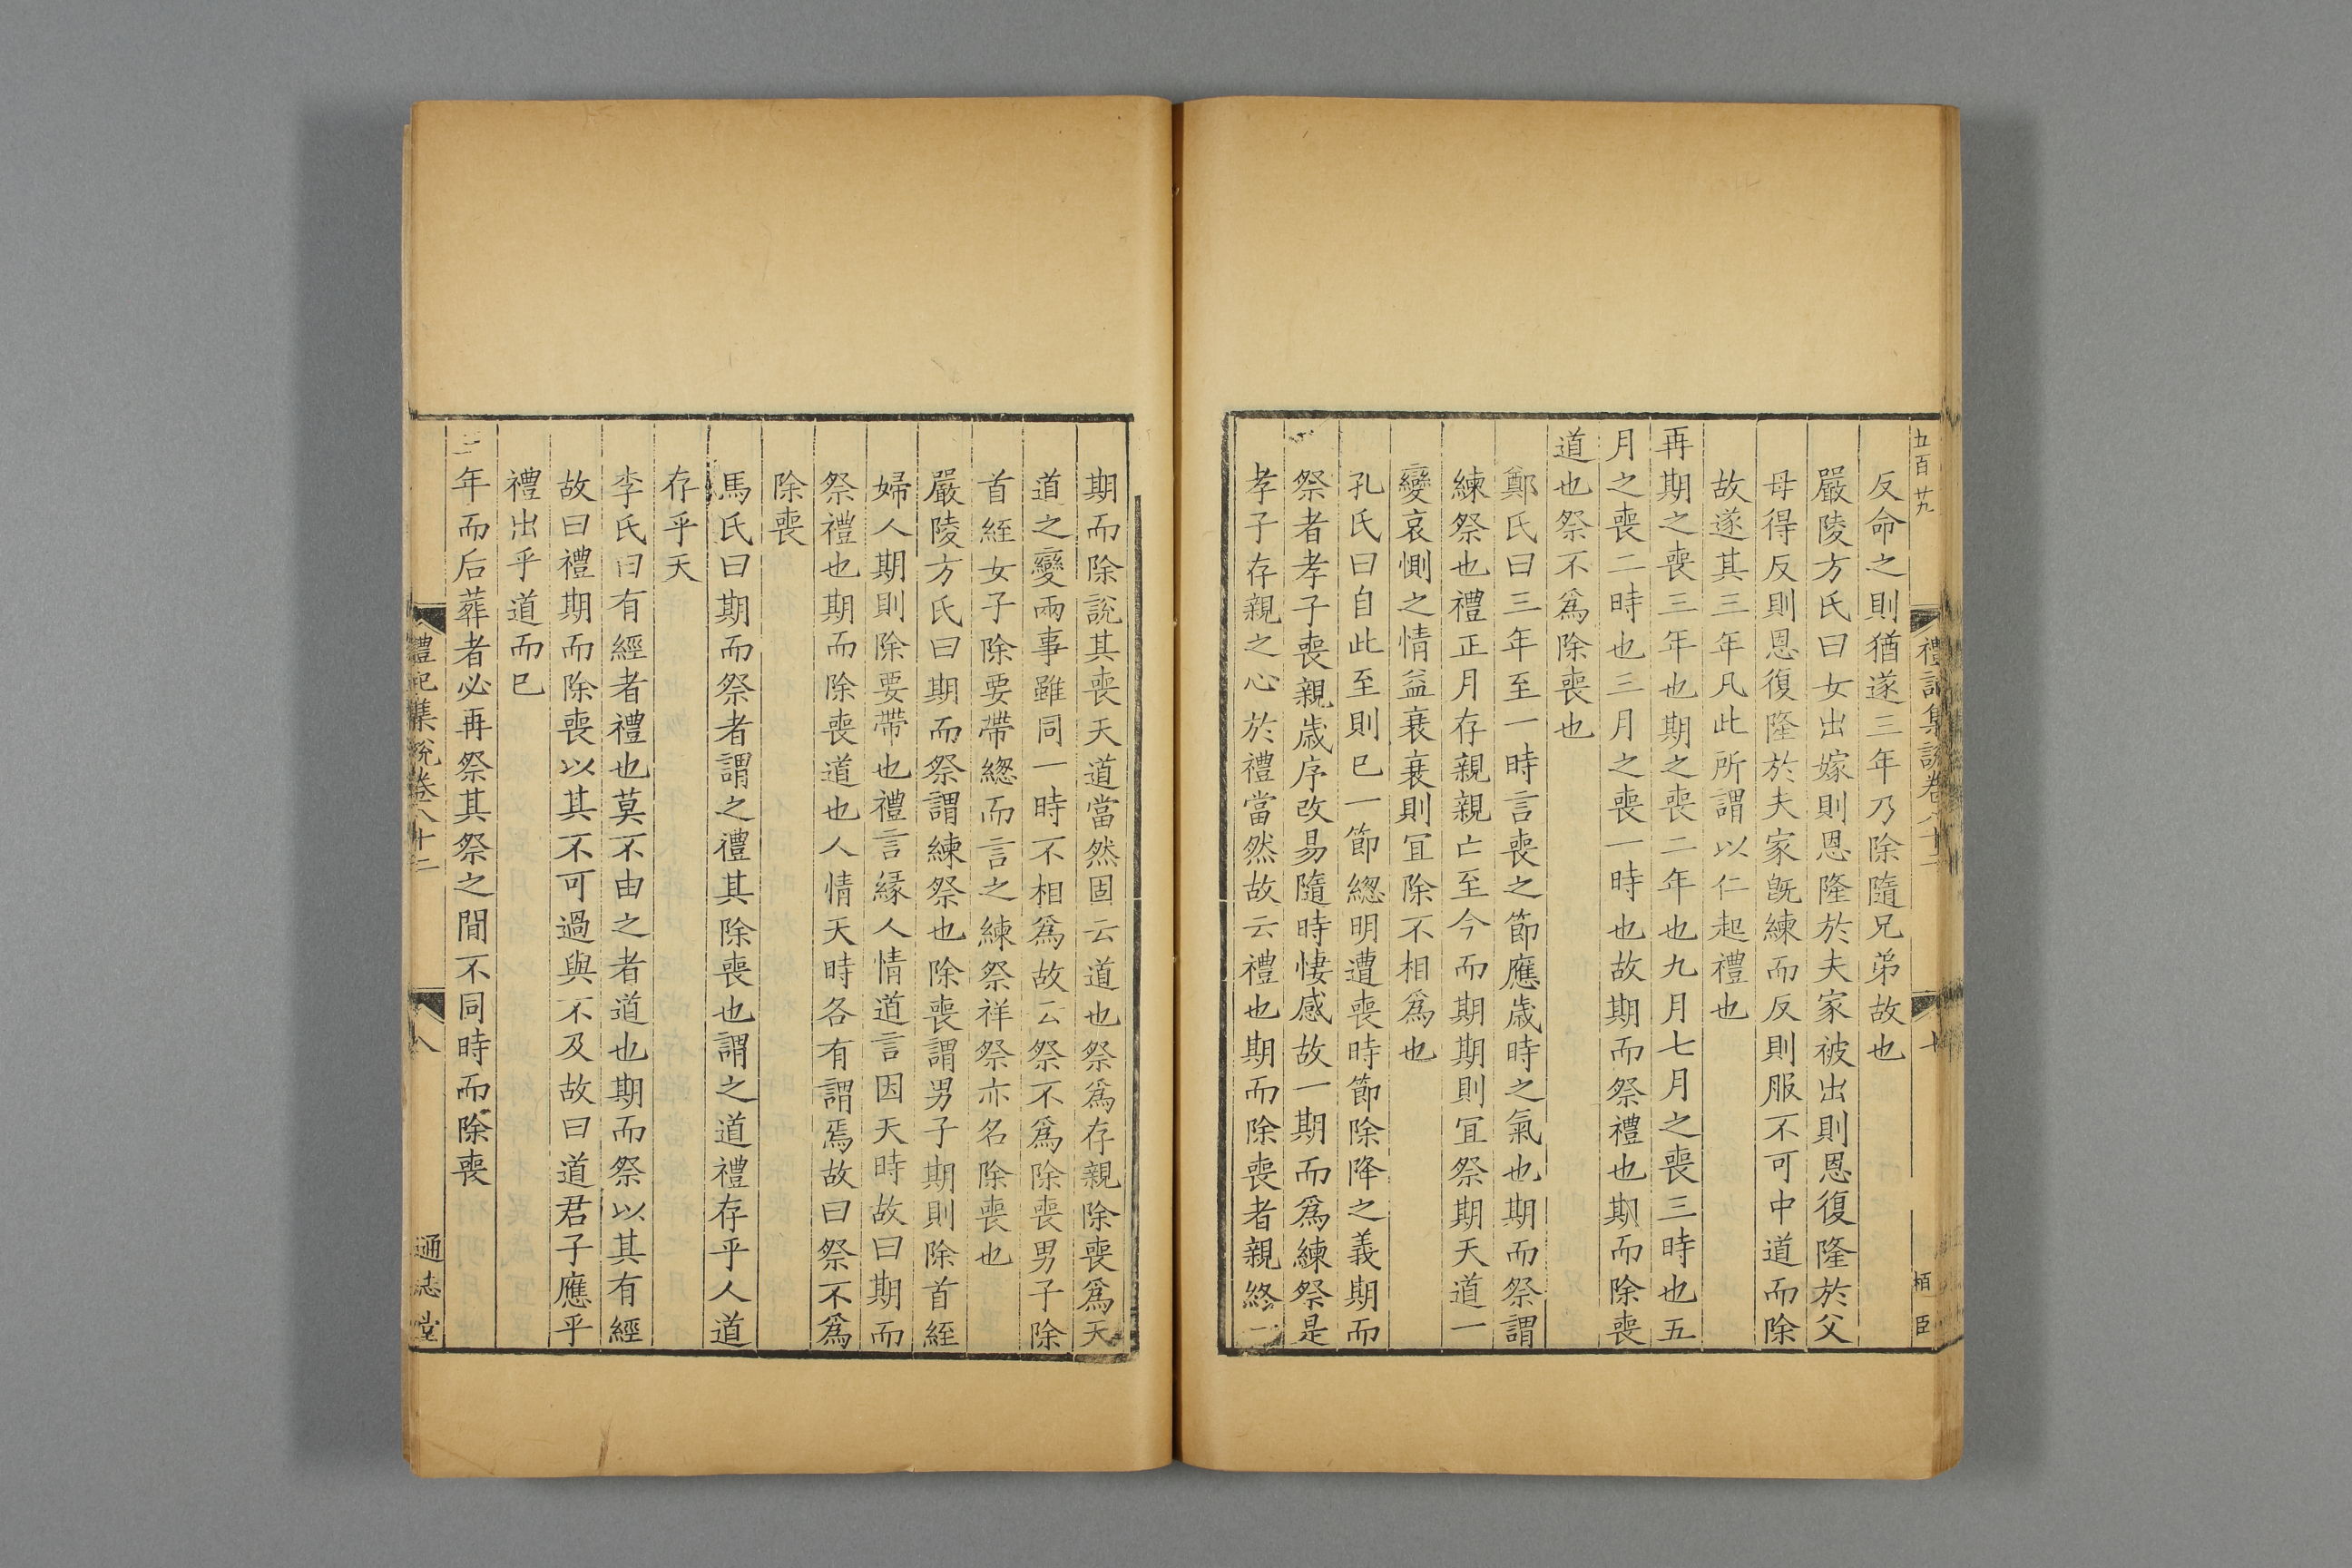 五百廿九
禮記集說卷八十二
十
栢臣
反命之則猶遂三年乃除隨兄弟故也
嚴陵方氏曰女出嫁則恩隆於夫家被出則恩復隆於父
母得反則恩復隆於夫家旣練而反則服不可中道而除
故遂其三年凡此所謂以仁起禮也
再期之喪三年也期之喪二年也九月七月之喪三時也五
月之喪二時也三月之喪一時也故期而祭禮也期而除喪
道也祭不爲除喪也
鄭氏曰三年至一時言喪之節應歲時之氣也期而祭謂
練祭也禮正月存親親亡至今而期期則宜祭期天道一
變哀惻之情益衰衰則宜除不相爲也
孔氏曰自此至則已一節緫明遭喪時節除降之義期而
祭者孝子喪親歲序改易隨時悽感故一期而爲練祭是
孝子存親之心於禮當然故云禮也期而除喪者親終一
期而除說其喪天道當然固云道也祭爲存親除喪爲天
道之變兩事雖同一時不相爲故云祭不爲除喪男子除
首絰女子除要帶緫而言之練祭祥祭亦名除喪也
嚴陵方氏曰期而祭謂練祭也除喪謂男子期則除首絰
婦人期則除要帶也禮言緣人情道言因天時故曰期而
祭禮也期而除喪道也人情天時各有謂焉故曰祭不爲
除喪
馬氏曰期而祭者謂之禮其除喪也謂之道禮存乎人道
存乎天
李氏曰有經者禮也莫不由之者道也期而祭以其有經
故曰禮期而除喪以其不可過與不及故曰道君子應乎
禮出乎道而已
三年而后葬者必再祭其祭之間不同時而除喪
禮記集說卷八十二
八
通志堂